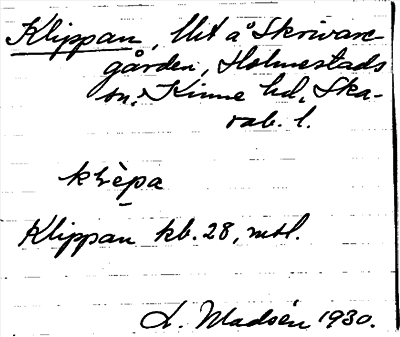 Klippan, lht å Skrivare
gården, Holmestads
sn, Kinne hd, Ska-
rab. l.
klèpa
Klippan kb. 28, mtl.
L. Madsén 1930.